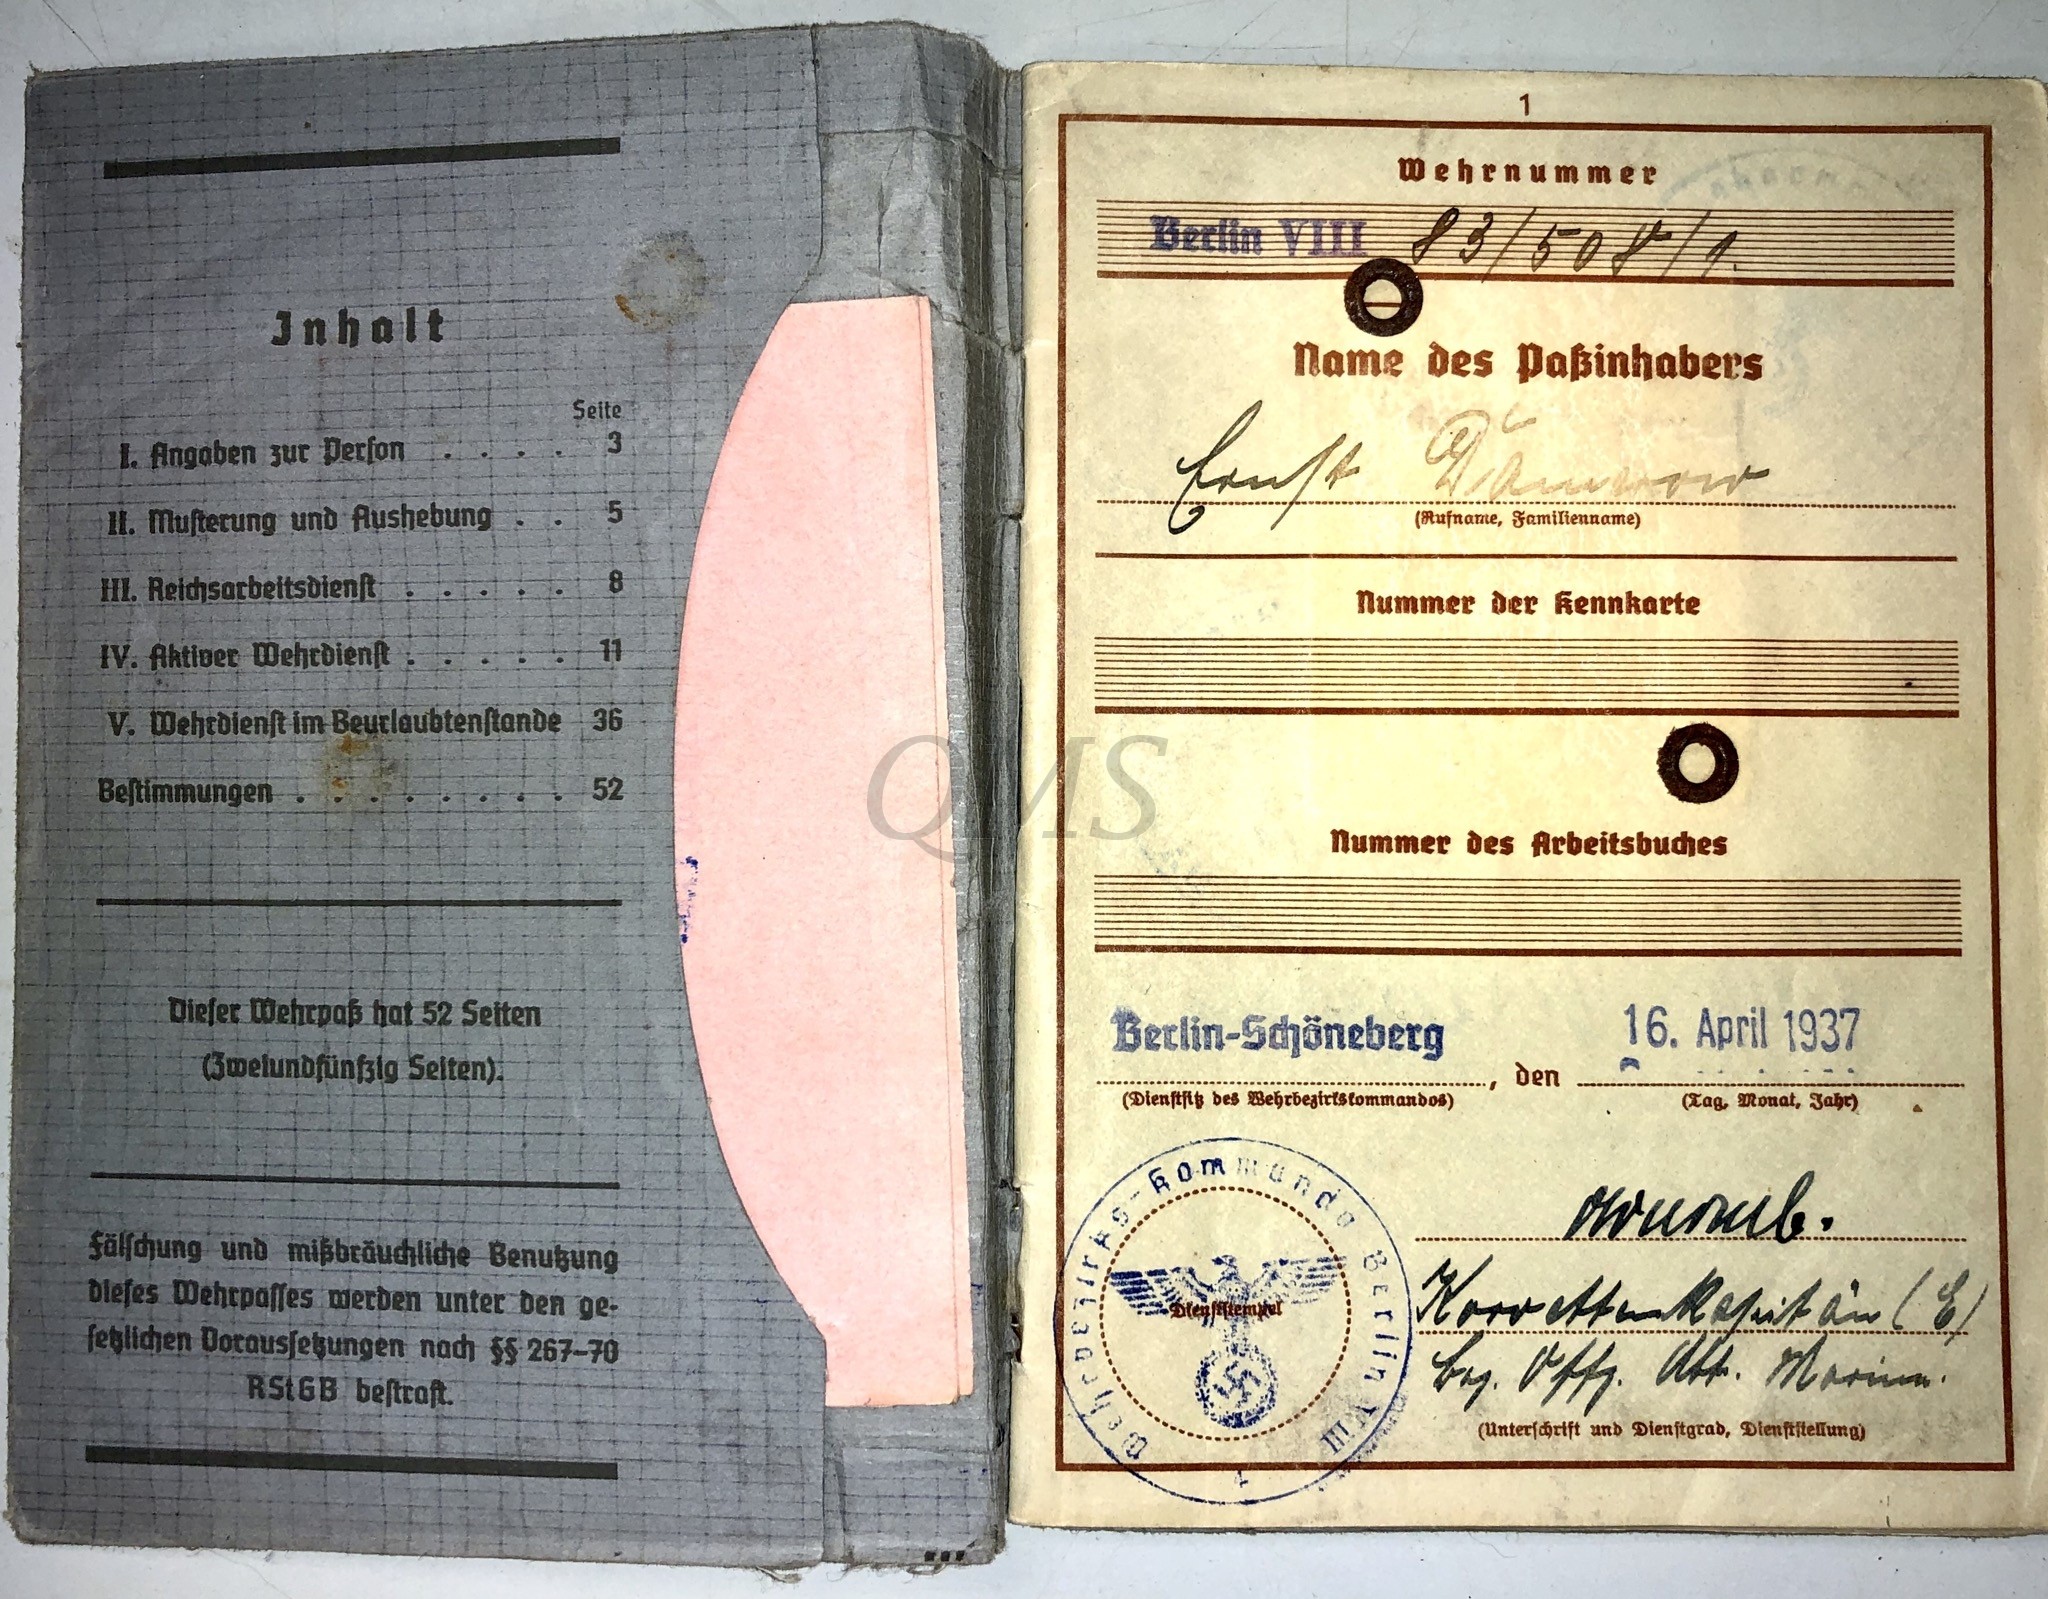 Inhalt
Seite
I. Angaben zur Person . . . . 3
II. Musterung und Aushebung . . 5
III. Reichsarbeitsdienst . . . . . 8
IV. Aktiver Wehrdienst . . . . . 11
V. Wehrdienst im Beurlaubtenstande 36
Bestimmungen . . . . . . . . 52
Dieser Wehrpaß hat 52 Seiten
(Zweiundfünfzig Seiten).
Fälschung und mißbräuchliche Benutzung
dieses Wehrpasses werden unter den ge-
setzlichen Voraussetzungen nach §§ 267–70
RStGB bestraft.
1
Wehrnummer
Berlin VIII 83/508/1.
Name des Paßinhabers
Ernst
(Rufname, Familienname)
Nummer der Kennkarte
QMS
Nummer des Arbeitsbuches
Berlin-Schöneberg, den 16. April 1937
(Dienstsitz des Wehrbezirkskommandos) (Tag, Monat, Jahr)
Wehrbezirks-Kommando Berlin VIII
Dienststempel
Korvettenkapitän (E)
Offz.
(Unterschrift und Dienstgrad, Dienststellung)